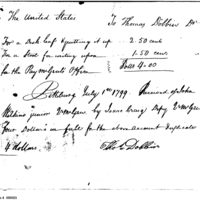 The United States To Thomas Dobbins Dr
For a Desk leaf & putting it up 2.50 cents
For a Stool for writing upon 1.50 cents
for the Paymasters Office Dolls 4.00
Pittsburg July 1st 1799 Received of John
Wilkins junior QrMGen by Isaac Craig Depy QrMGen
Four Dollars in full for the above account duplicate
4 Dollars.
Thos Dobbins